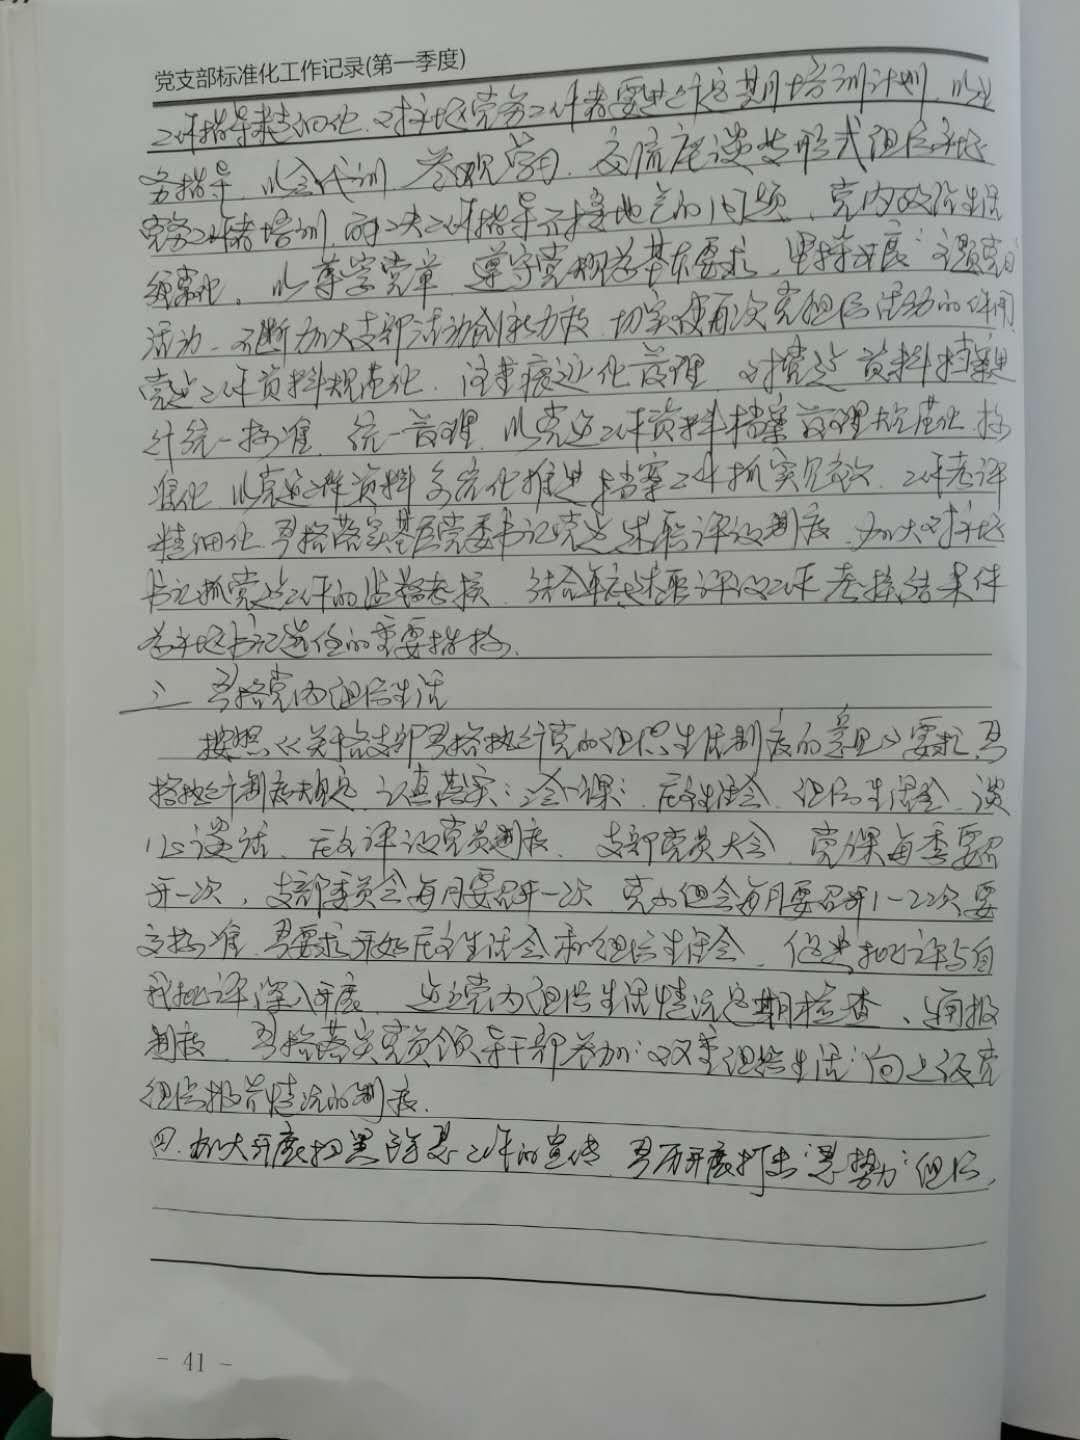 党支部标准化工作记录(第一季度)
工作指导精细化,对社区党务工作者要进行定期培训计划,以业
务指导,以会代训,参观学习,交流座谈等形式组织社区
党务工作者培训,解决工作指导不接地气的问题,党内政治生活
经常化,以尊崇党章,遵守党规为基本要求,坚持开展"主题党日"
活动,不断加大支部活动创新力度,切实使每次党组织活动的作用
党建工作资料规范化,注重痕迹化管理,对党建资料档案进
行统一标准,统一管理,以党建工作资料档案管理规范化,标
准化,以党建工作资料系统化推进档案工作抓实见效,工作考评
精细化,严格落实基层党委书记党建述职评议制度,加大对社区
书记抓党建工作的监督考核,结合年度述职评议工作考核结果作
为社区书记选任的重要指标。
三、严格党内组织生活
按照《关于各支部严格执行党的组织生活制度的意见》要求,严
格执行制度规定,认真落实"三会一课",民主生活会,组织生活会,谈
心谈话,民主评议党员制度,支部党员大会,党课每季要召
开一次,支部委员会每月要召开一次,党小组会每月要召开1-2次,要
高标准,严要求开好民主生活会和组织生活会,促进批评与自
我批评深入开展,建立党内组织生活情况定期检查、通报
制度,严格落实党员领导干部参加"双重组织生活"向上级党
组织报告情况的制度。
四.加大开展扫黑除恶工作的宣传,严厉开展打击"恶势力"组织,
- 41 -